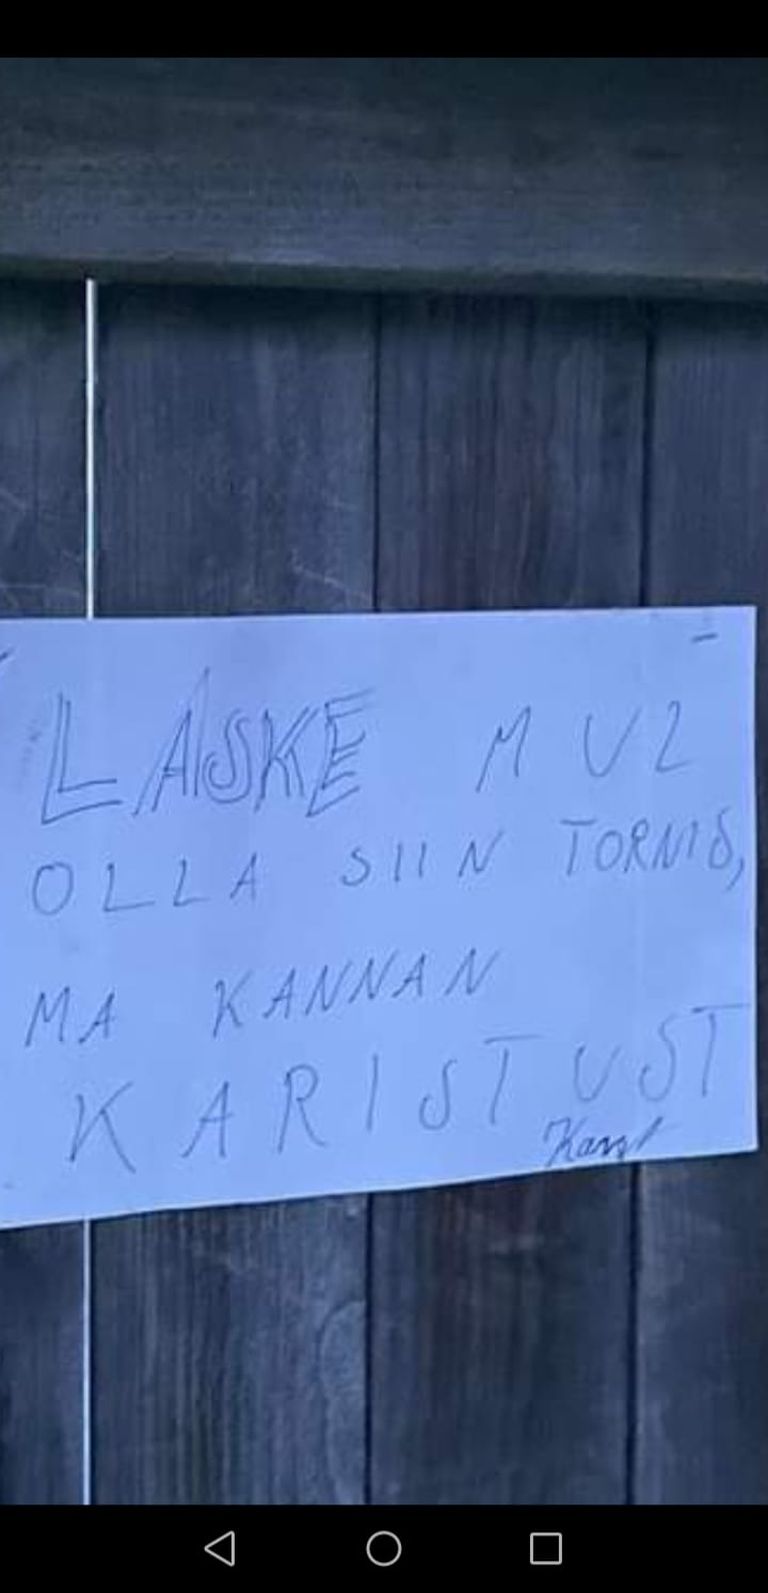 LASKE MUL
OLLA SIIN TORNIS,
MA KANNAN
KARISTUST